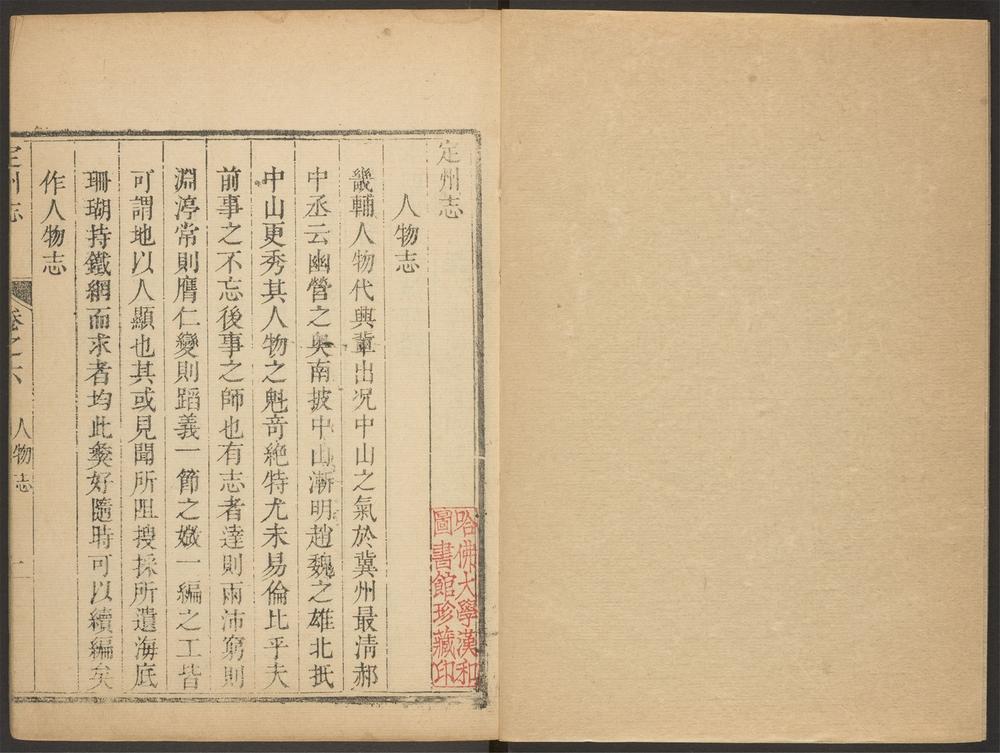 定州志
人物志
畿輔人物代興輩出况中山之氣於冀州最清郝
中丞云幽營之奥南披中山漸明趙魏之雄北抵
中山更秀其人物之魁竒絶特尤未易倫比乎夫
前事之不忘後事之師也有志者達則雨沛窮則
淵渟常則膺仁變則蹈義一節之媺一編之工皆
可謂地以人顯也其或見聞所阻搜採所遺海底
珊瑚持鐵網而求者均此懿好隨時可以續編矣
作人物志
定州志
卷之六
人物志
一
哈佛大學漢和
圖書館珍藏印